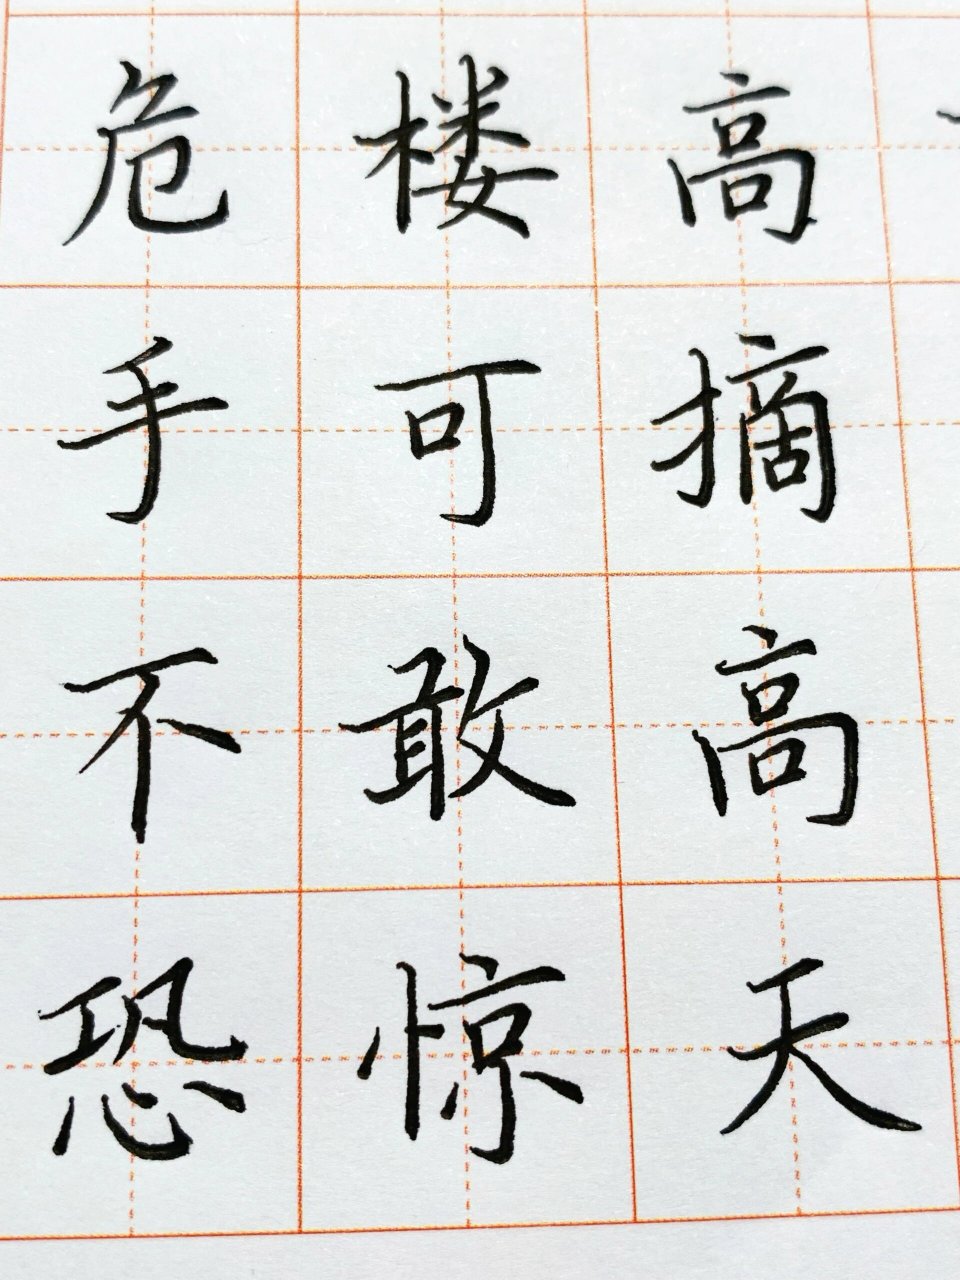 危楼高
手可摘
不敢高
恐惊天